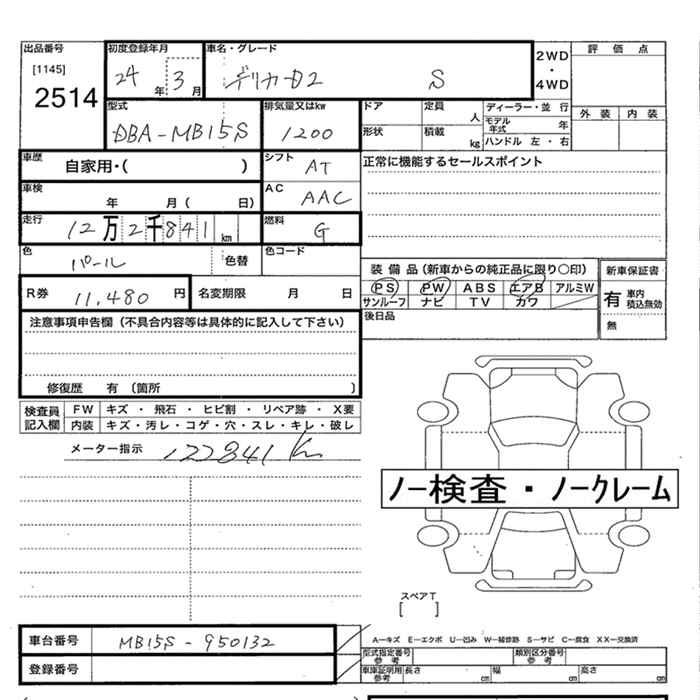 出品番号 初度登録年月 車名・グレード 2WD・4WD 評価点
[1145]
2514
24年 3月 デリカD2 S
外装 内装
型式 排気量又はkw ドア 定員 人 ディーラー・並行
DBA-MB15S 1200 モデル年式 年
形状 積載 kg ハンドル 左・右
車歴 自家用・( ) シフト AT 正常に機能するセールスポイント
車検 年 月( 日) AC AAC
走行 12万2千841km 燃料 G
色 パール 色替 色コード
装備品(新車からの純正品に限り○印) 新車保証書
R券 11,480円 名変期限 月 日
PS PW ABS エアB アルミW 有 車内積込無効
サンルーフ ナビ TV カワ
後日品 無
注意事項申告欄(不具合内容等は具体的に記入して下さい)
修復歴 有 (箇所 )
検査員記入欄 FW キズ・飛石・ヒビ割・リペア跡・X要
内装 キズ・汚レ・コゲ・穴・スレ・キレ・破レ
メーター指示 122841 Km
ノー検査・ノークレーム
スペアT
[ ]
車台番号 MB15S-950132
A―キズ E―エクボ U―凹み W―補修跡 S―サビ C―腐食 XX―交換済
型式指定番号 参考 類別区分番号 参考
登録番号 車庫証明用 参考 長さ cm 幅 cm 高さ cm